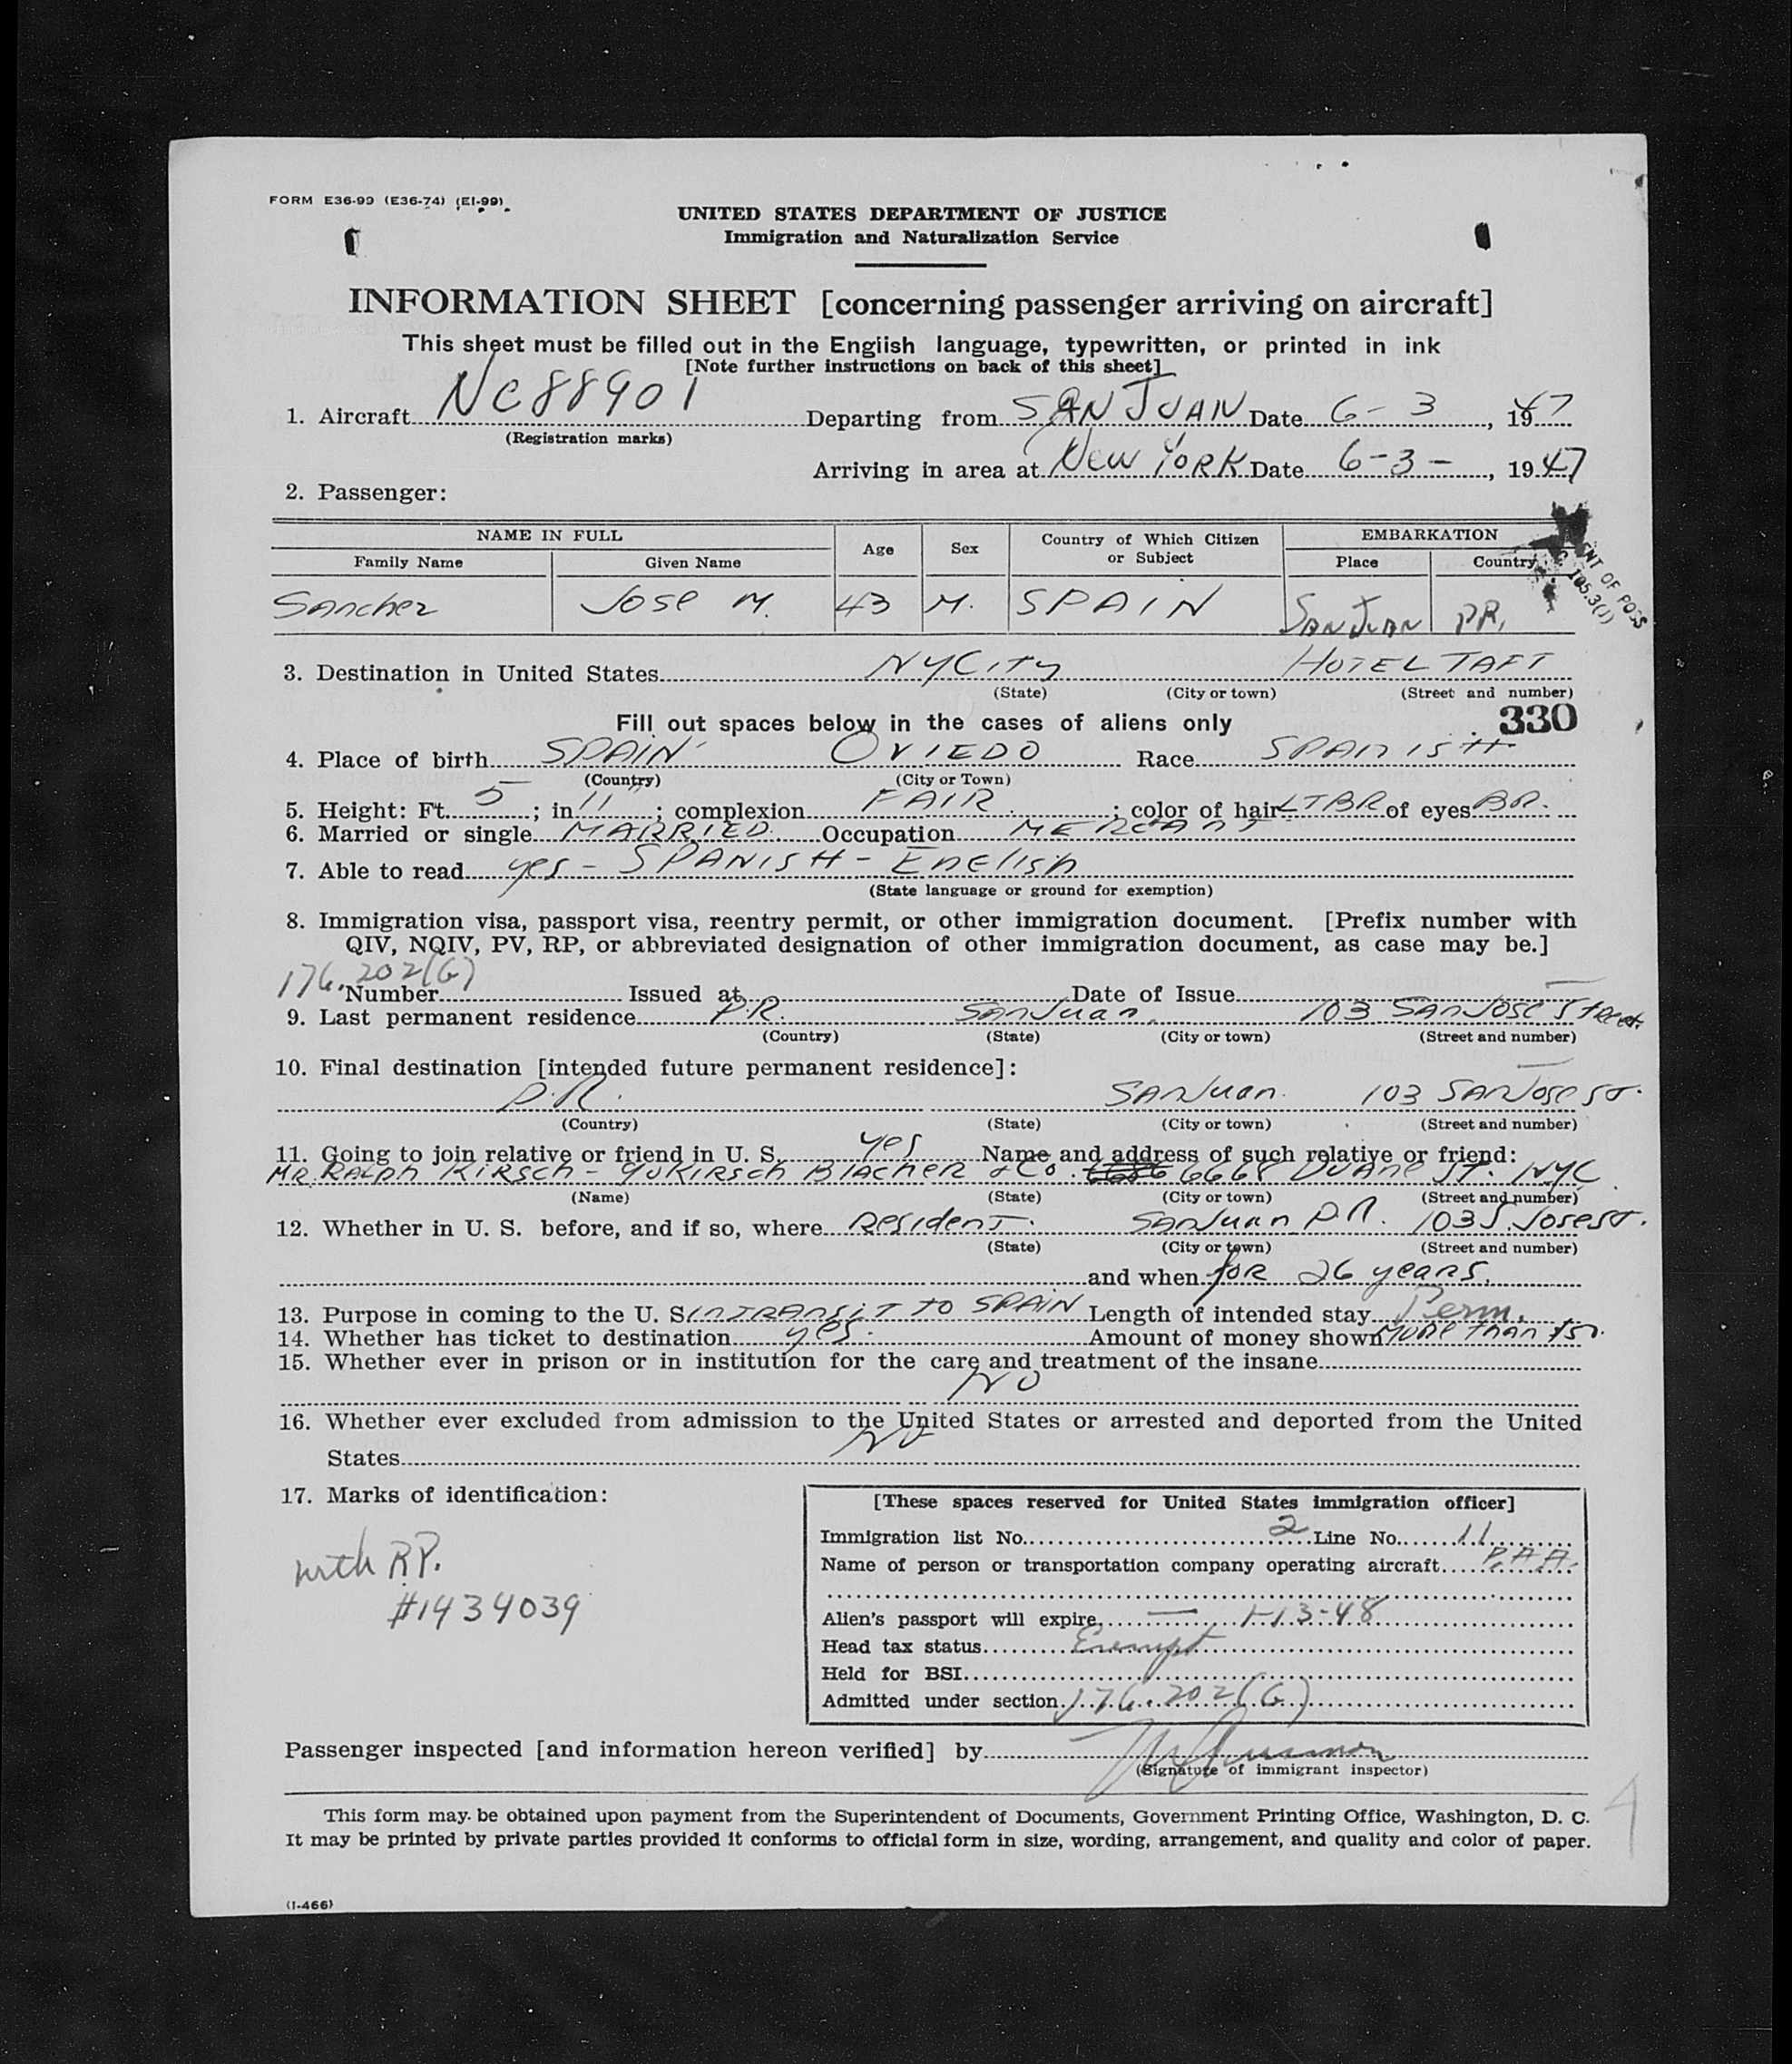 FORM E36-99 (E36-74) (EI-99)
UNITED STATES DEPARTMENT OF JUSTICE
Immigration and Naturalization Service
INFORMATION SHEET [concerning passenger arriving on aircraft]
This sheet must be filled out in the English language, typewritten, or printed in ink
[Note further instructions on back of this sheet]
1. Aircraft NC88901 Departing from SAN JUAN Date 6-3, 1947
(Registration marks)
Arriving in area at New YORK Date 6-3-, 1947
2. Passenger:
NAME IN FULL Age Sex Country of Which Citizen or Subject EMBARKATION
Family Name Given Name Place Country
Sanchez Jose M. 43 M. SPAIN SAN JUAN PR.
ENT OF POSS
105.3(J)
3. Destination in United States NY City HOTEL TAFT
(State) (City or town) (Street and number)
Fill out spaces below in the cases of aliens only 330
4. Place of birth SPAIN OVIEDO Race SPANISH
(Country) (City or Town)
5. Height: Ft. 5; in 11"; complexion FAIR; color of hair LTBR of eyes BR.
6. Married or single MARRIED. Occupation MERCANT
7. Able to read yes - SPANISH - English
(State language or ground for exemption)
8. Immigration visa, passport visa, reentry permit, or other immigration document. [Prefix number with
QIV, NQIV, PV, RP, or abbreviated designation of other immigration document, as case may be.]
176.202(G)
Number Issued at Date of Issue —
9. Last permanent residence P.R. San Juan 103 San Jose Street
(Country) (State) (City or town) (Street and number)
10. Final destination [intended future permanent residence]:
P.R. San Juan. 103 San Jose St.
(Country) (State) (City or town) (Street and number)
11. Going to join relative or friend in U. S. yes Name and address of such relative or friend:
MR. RALPH KIRSCH - % KIRSCH BLACHER & Co. 6668 DUANE ST. NYC
(Name) (State) (City or town) (Street and number)
12. Whether in U. S. before, and if so, where Resident. San Juan P.R. 103 S. Jose St.
(State) (City or town) (Street and number)
and when for 26 years.
13. Purpose in coming to the U. S. IN TRANSIT TO SPAIN Length of intended stay Perm.
14. Whether has ticket to destination yes. Amount of money shown More than 50.
15. Whether ever in prison or in institution for the care and treatment of the insane
NO
16. Whether ever excluded from admission to the United States or arrested and deported from the United
States NO
17. Marks of identification:
with R.P.
#1434039
[These spaces reserved for United States immigration officer]
Immigration list No. 2 Line No. 11
Name of person or transportation company operating aircraft P.A.A.
Alien's passport will expire — 1-13-48
Head tax status Exempt
Held for BSI
Admitted under section 176.202(G)
Passenger inspected [and information hereon verified] by
(Signature of immigrant inspector)
This form may be obtained upon payment from the Superintendent of Documents, Government Printing Office, Washington, D. C.
It may be printed by private parties provided it conforms to official form in size, wording, arrangement, and quality and color of paper.
(I-466)